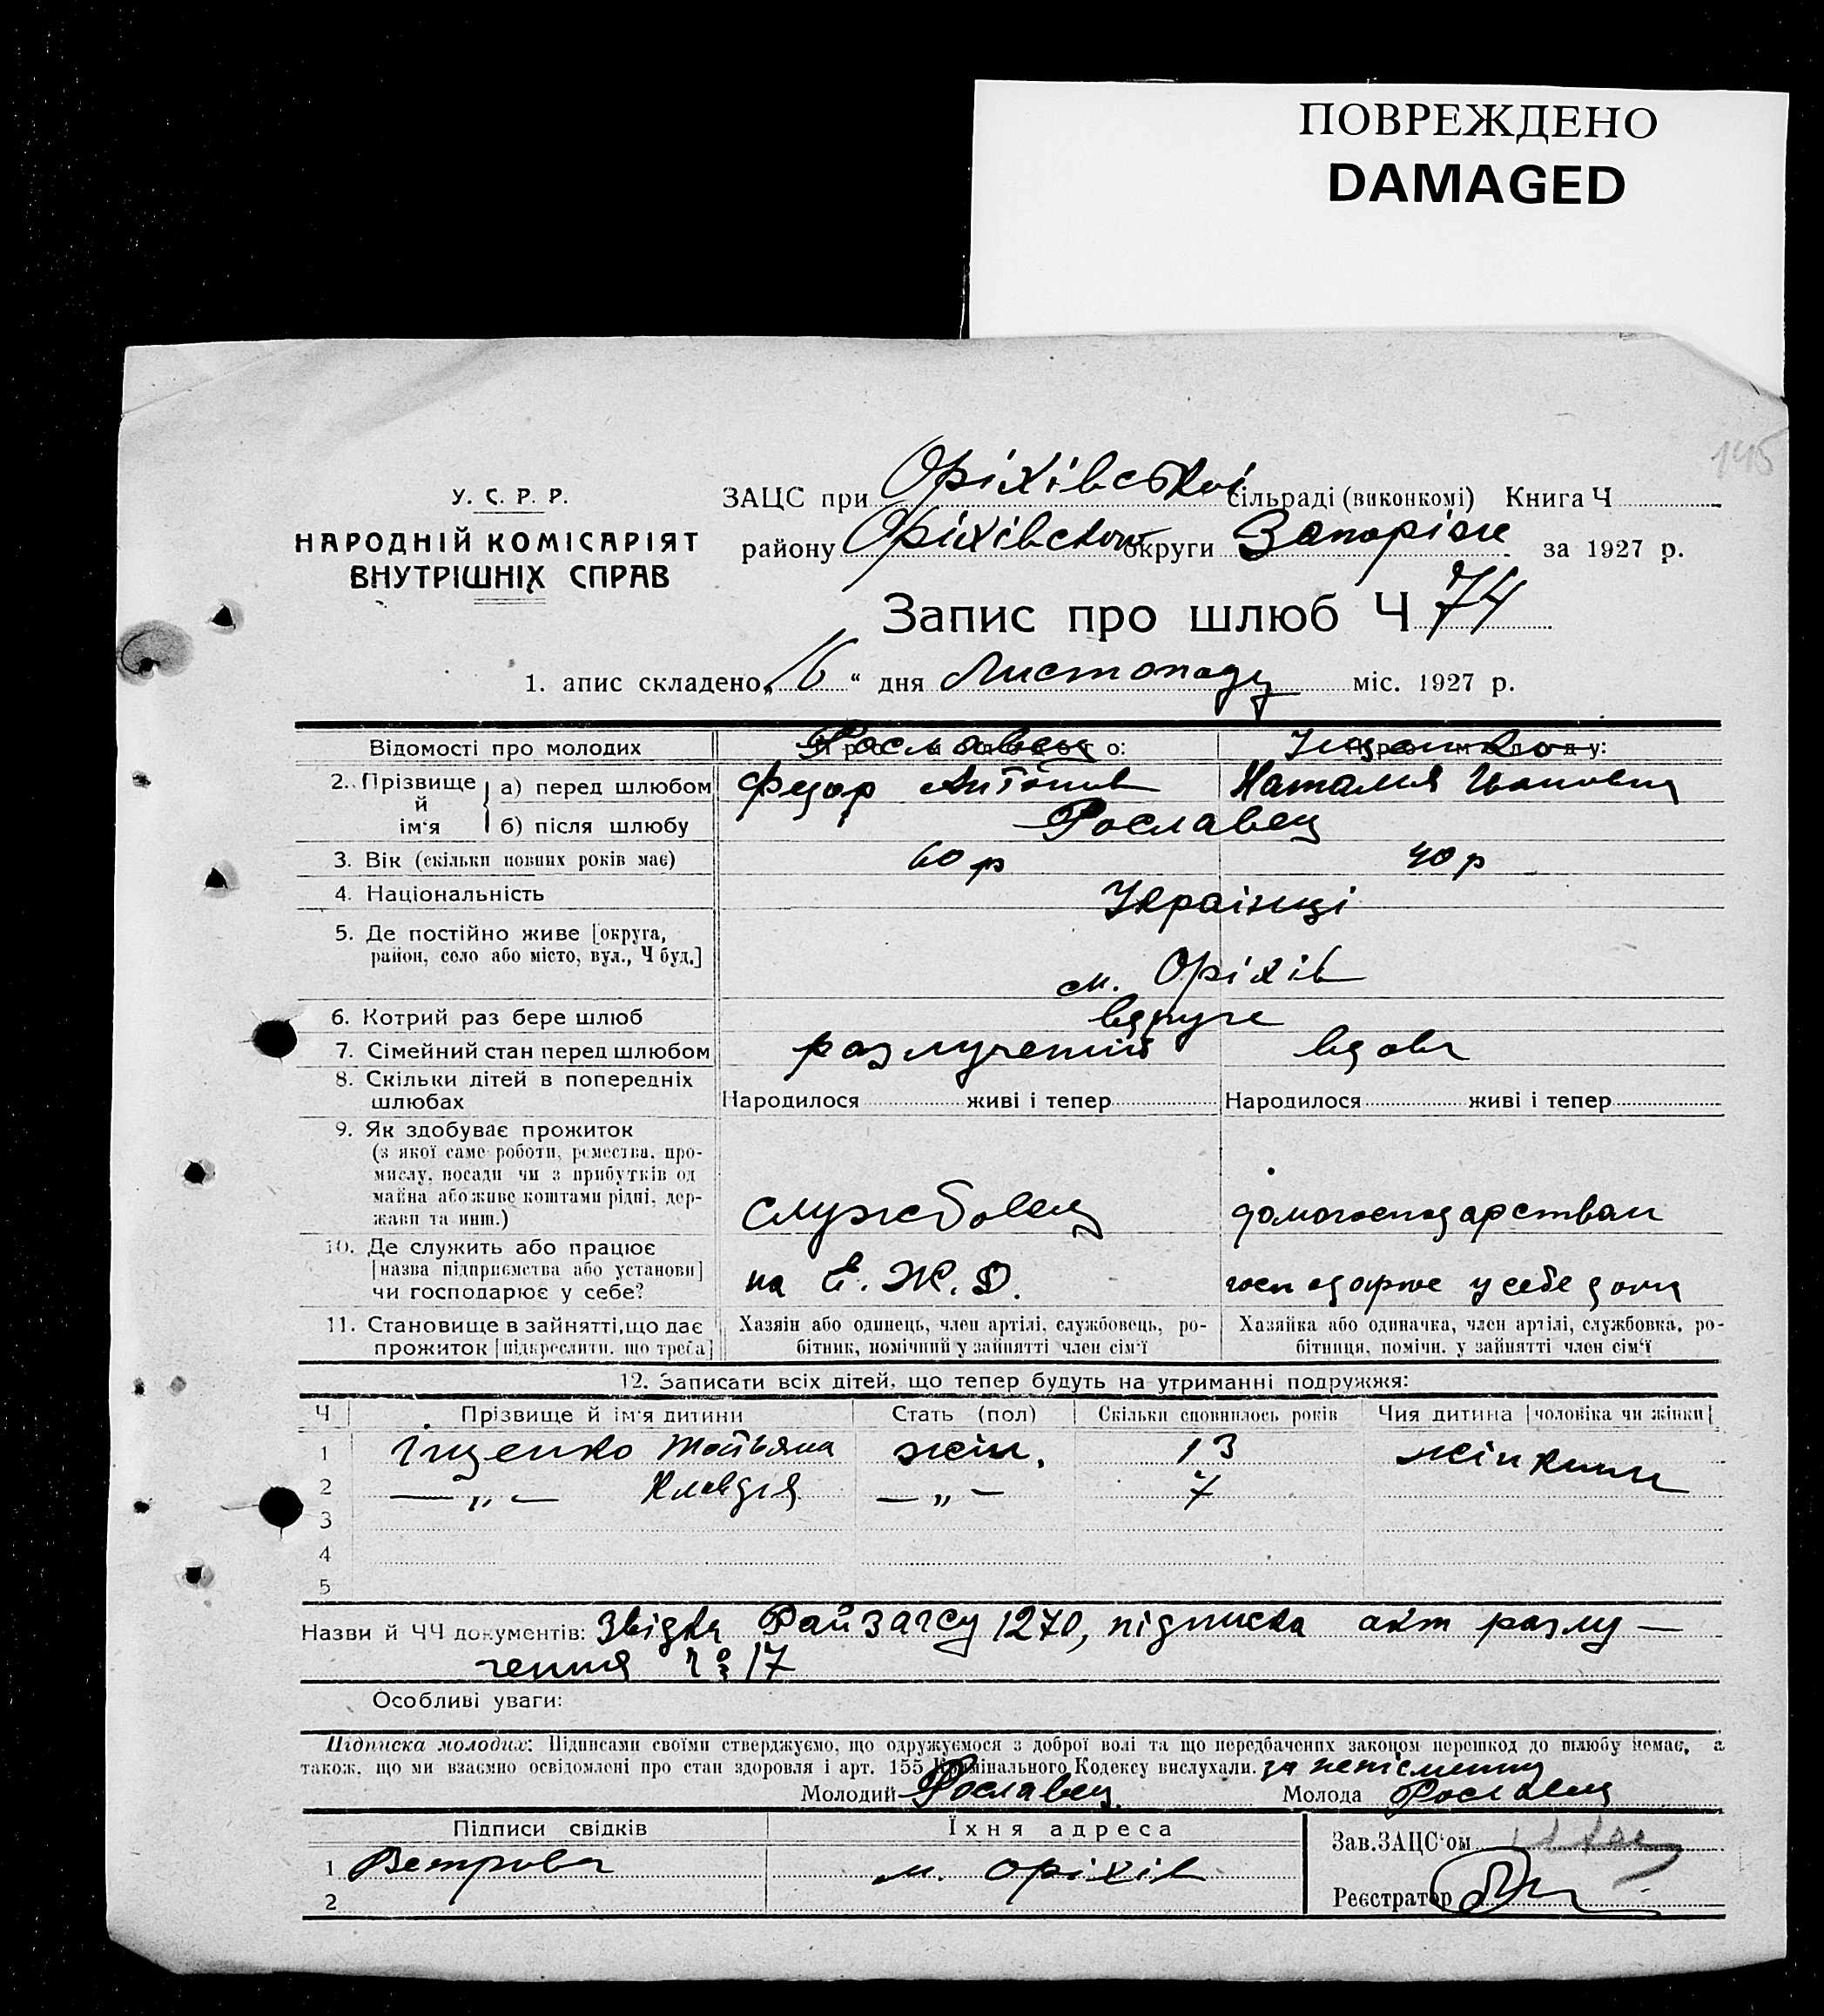 ПОВРЕЖДЕНО
DAMAGED
145
У. С. Р. Р.
НАРОДНІЙ КОМІСАРІЯТ
ВНУТРІШНІХ СПРАВ
ЗАЦС при Оріхівській сільраді (виконкомі) Книга Ч
району Оріхівском округи Запоріже за 1927 р.
Запис про шлюб Ч 74
1. апис складено „16“ дня Листопаду міс. 1927 р.
Відомості про молодих Про молодого: Рославец Про молоду: Іщенко
2. Прізвище й ім'я а) перед шлюбом Федор Антонів Наталия Ивановна
б) після шлюбу Рославец
3. Вік (скільки повних років має) 60 р 40 р
4. Національність Українці
5. Де постійно живе [округа,
район, село або місто, вул., Ч буд.] м. Оріхів
6. Котрий раз бере шлюб вдруге
7. Сімейний стан перед шлюбом разлучений вдова
8. Скільки дітей в попередніх
шлюбах Народилося живі і тепер Народилося живі і тепер
9. Як здобуває прожиток
(з якої саме роботи, ремества, про-
мислу, посади чи з прибутків од
майна або живе коштами рідні, дер-
жави та инш.) службовец домогосподарствам
10. Де служить або працює
[назва підприємства або установи]
чи господарює у себе? на Е. Ж. Д. господарює у себе дома
11. Становище в зайнятті, що дає
прожиток [підкреслити, що треба]
Хазяін або одинець, член артілі, службовець, ро-
бітник, помічний у зайнятті член сім'ї
Хазяйка або одиначка, член артілі, службовка, ро-
бітниця, помічн. у зайнятті член сім'ї
12. Записати всіх дітей, що тепер будуть на утриманні подружжя:
Ч Прізвище й ім'я дитини Стать (пол) Скільки сповнилось років Чия дитина [чоловіка чи жінки]
1 Іщенко Татьяна жін. 13 жінкини
2 — „ — Клавдія — „ — 7
3
4
5
Назви й ЧЧ документів: Звідка Райзагсу 1270, підписка акт разлу—
чення 17
Особливі уваги:
Підписка молодих: Підписами своїми стверджуємо, що одружуємося з доброї волі та що передбачених законом перешкод до шлюбу немає, а
також, що ми взаємно освідомлені про стан здоровля і арт. 155 Кримінального Кодексу вислухали. за непісменну
Молодий Рославец Молода Рославец
Підписи свідків Їхня адреса
1 Ветрова м. Оріхів
2
Зав.ЗАЦС'ом
Реєстратор